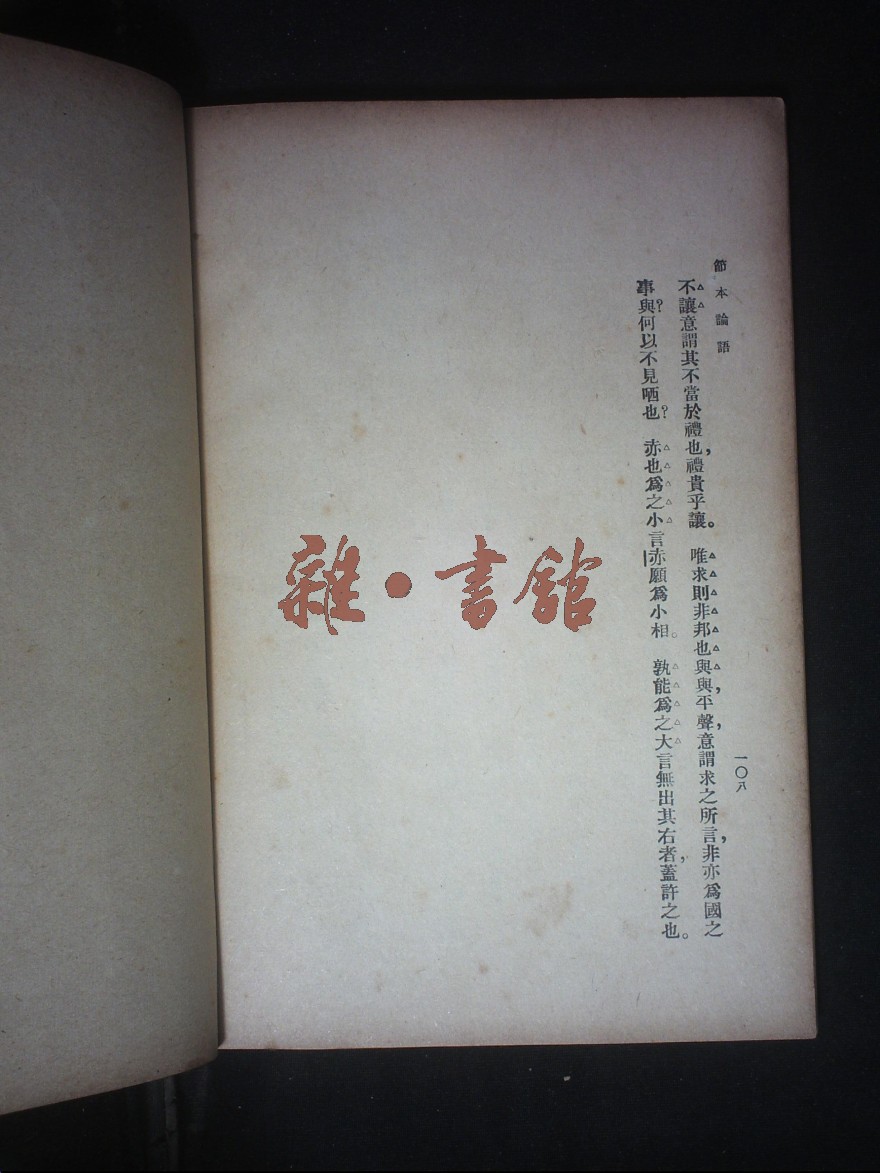 節本論語
一〇八
不讓意謂其不當於禮也,禮貴乎讓。 唯求則非邦也與與平聲,意謂求之所言,非亦爲國之
事與?何以不見哂也? 赤也爲之小言赤願爲小相。 孰能爲之大言無出其右者,蓋許之也。
雜·書館